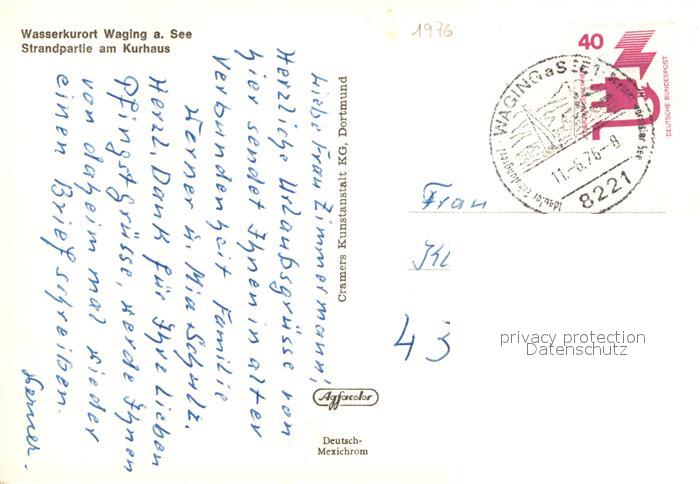 Wasserkurort Waging a. See
Strandpartie am Kurhaus
1976
Liebe Frau Zimmermann!
Herzliche Urlaubsgrüsse von
hier sendet Ihnen in alter
Verbundenheit Familie
Werner u. Mia Schulz.
Herzl. Dank für Ihre lieben
Pfingstgrüsse, werde Ihnen
von daheim mal wieder
einen Brief schreiben.
Werner.
Cramers Kunstanstalt KG, Dortmund
Agfacolor
Deutsch-
Mexichrom
40
DEUTSCHE BUNDESPOST
WAGING a SEE 1
11.-6.76-8
8221
Frau
Kl
43
privacy protection
Datenschutz